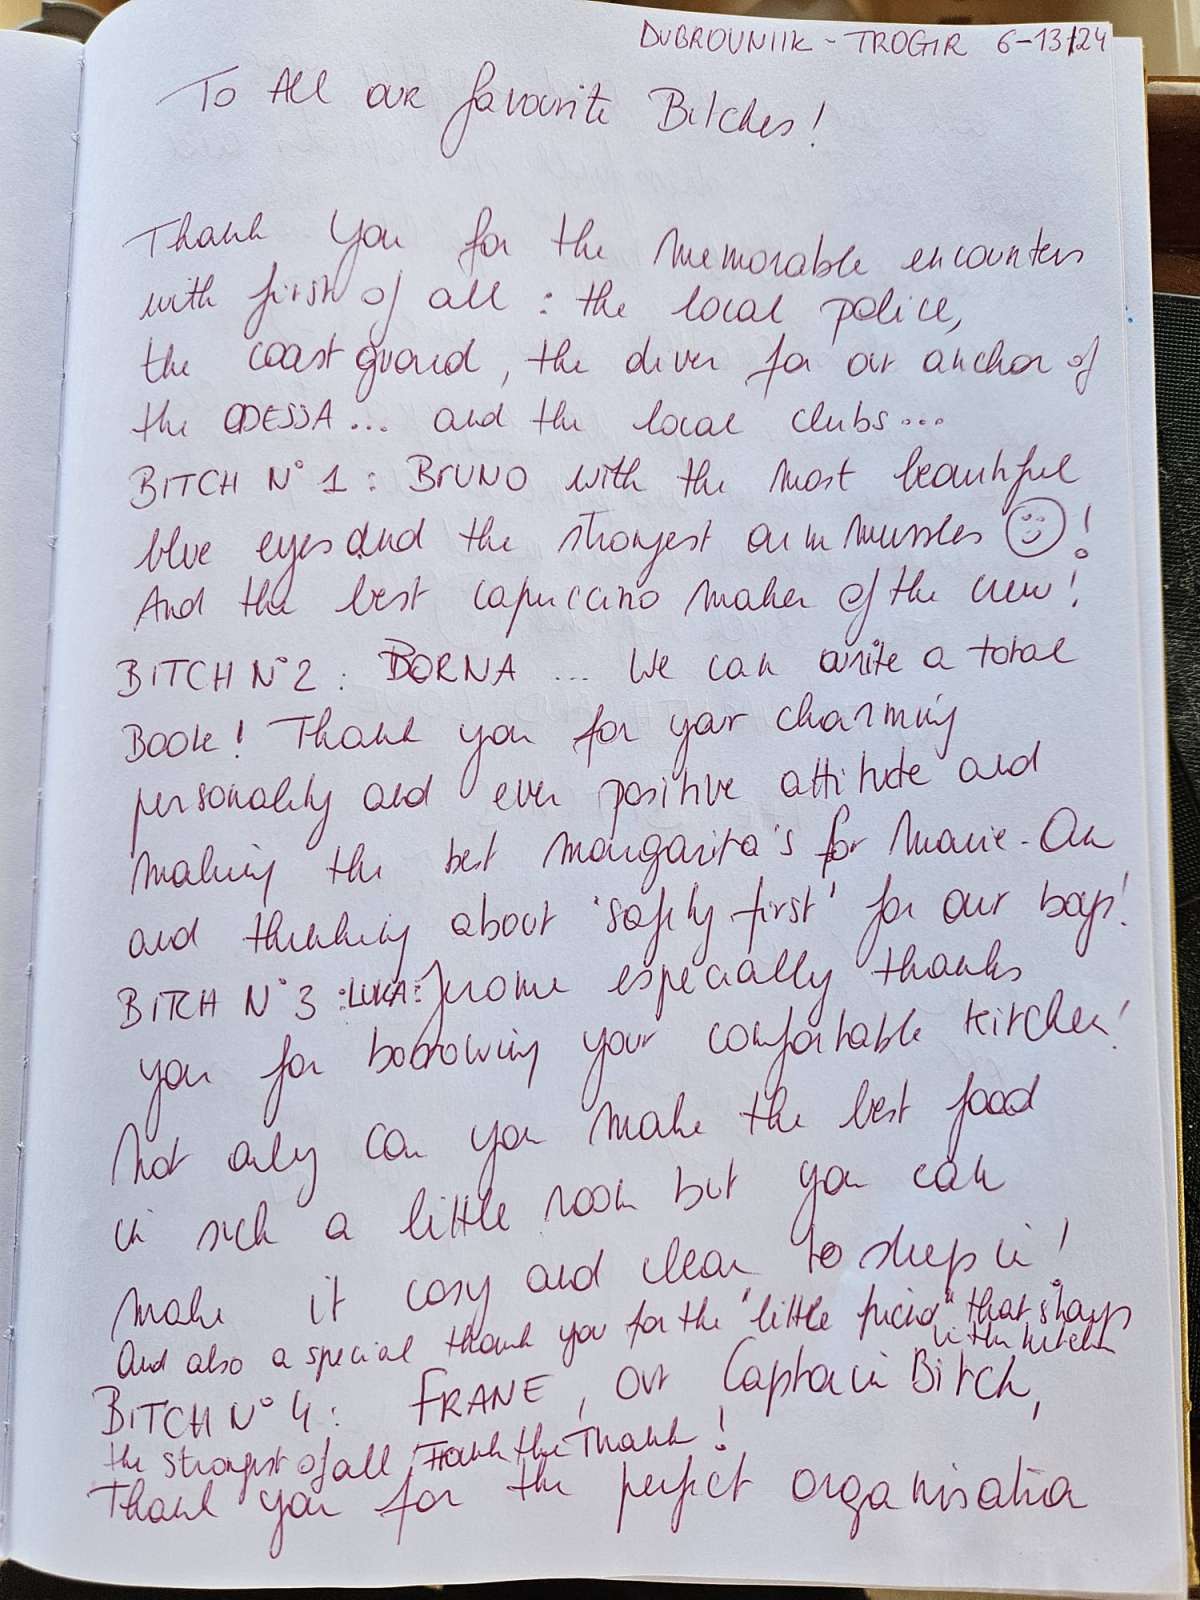 DUBROUNIIK - TROGIR 6-13/24
To All our favourite Bitches!
Thank you for the memorable encounters
with first of all : the local police,
the coast guard, the diver for our anchor of
the ODESSA... and the local clubs...
BITCH N° 1 : BRUNO with the most beautiful
blue eyes and the strongest arm mussles !
And the best capuccino maker of the crew!
BITCH N° 2 : BORNA ... We can write a total
Book! Thank you for your charming
personality and ever positive attitude and
making the best Margarita's for Marie-An
and thinking about 'safety first' for our boys!
BITCH N° 3 : LUKA : Jerome especially thanks
you for borrowing your comfortable kitchen!
Not only can you make the best food
in such a little room but you can
make it cosy and clean to sleep in!
And also a special thank you for the "little" that stays
in the kitchen
BITCH N° 4 : FRANE, our Captain Bitch,
the strongest of all, Frank the Thank!
Thank you for the perfect organisation